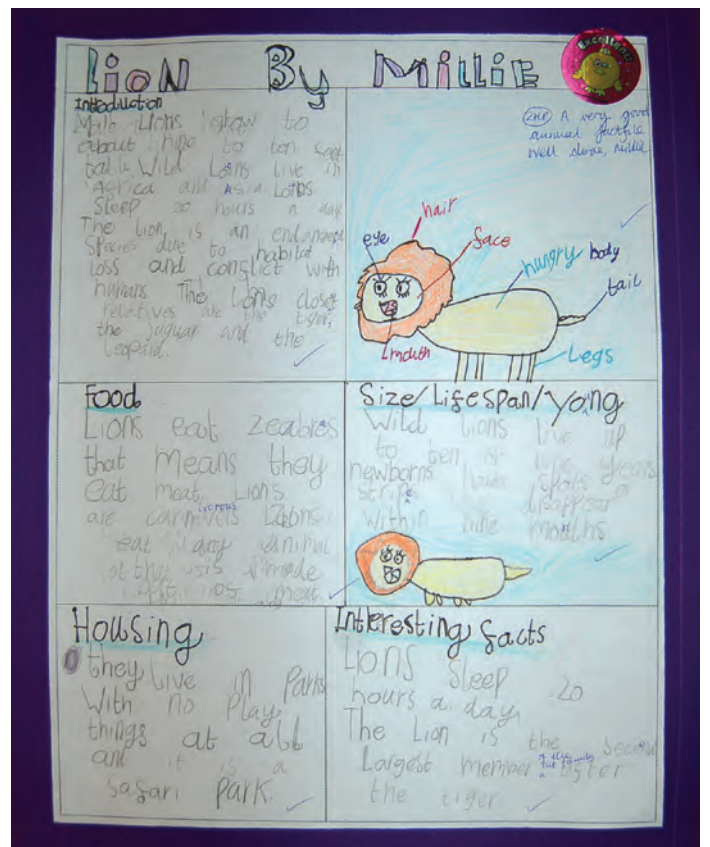 LioN By Millie
Excellence
Introduction
Male Lions grow to
about nine to ten feet
Wild Lions live in
Africa and Asia Loins
Sleep 20 hours a day
The Lion is an endangerd
species due to habitat
loss and conflict with
humans The Lions closet
relatives are the tiger,
the jaguar and the
Leopald.
A very good
animal factfile
well done, Millie
hair
eye
face
hungry
body
tail
mouth
Legs
Food
Lions eat Zeabres
that means they
eat meat. Lions
are carnivels
ivorous
eat any animal
made
meat
Size/Lifespan/young
Wild lions live up
to ten or nine years
newborns have spots or
strips
disappear
within nine months
Housing
they Live in Parks
With no play
things at all
and it is a
Safari Park.
Interesting facts
Lions Sleep 20
hours a day,
The Lion is the second
Largest member of the cat family
the tiger